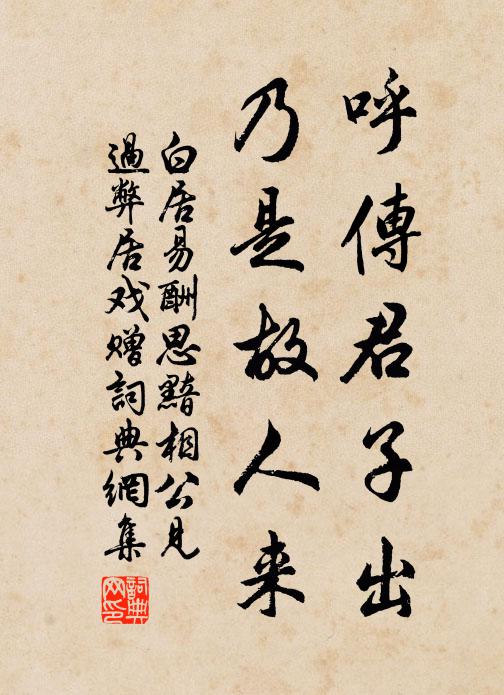 呼傳君子出
乃是故人来
白居易酬思黯相公見
過弊居戏贈詞典網集
詞典
网印